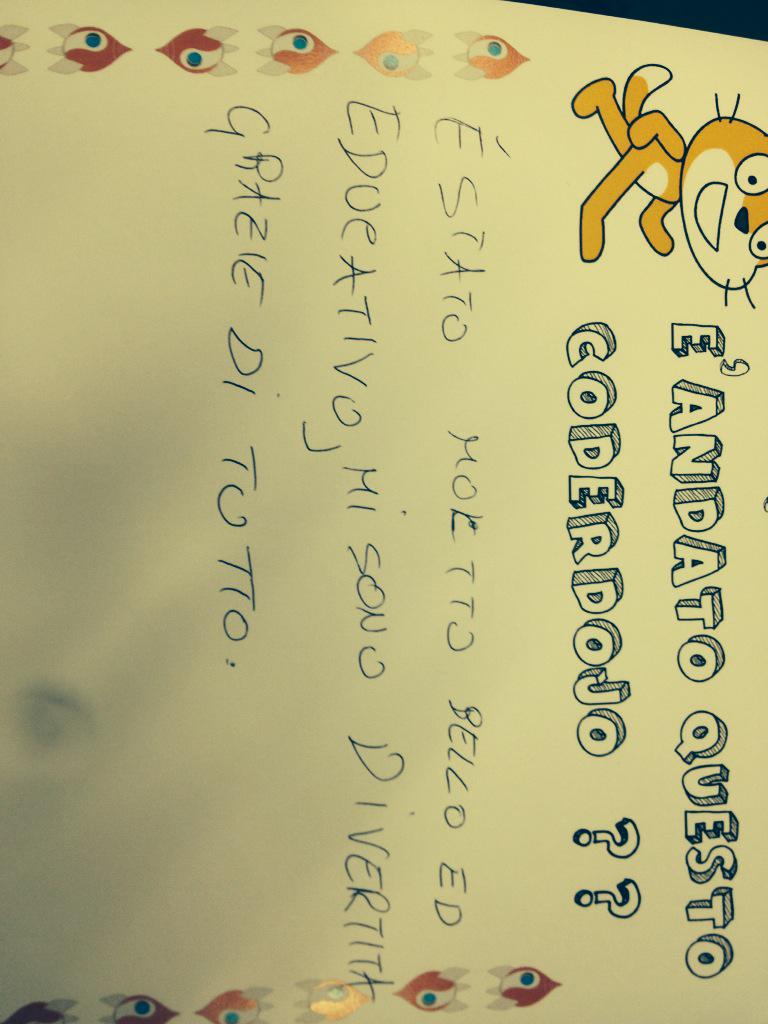 E'ANDATO QUESTO
CODERDOJO ??
É STATO MOLTO BELLO ED
EDUCATIVO, MI SONO DIVERTITA
GRAZIE DI TUTTO.